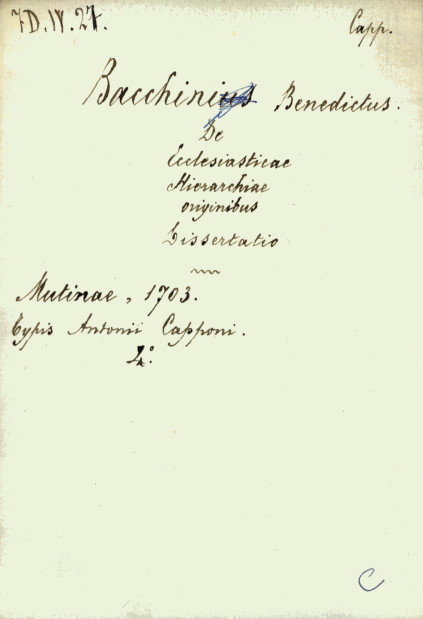 7D.IV.27.
Capp.
Bacchini Benedictus.
De
Ecclesiasticae
Hierarchiae
originibus
Dissertatio
Mutinae, 1703.
Typis Antonii Capponi.
4°.
C